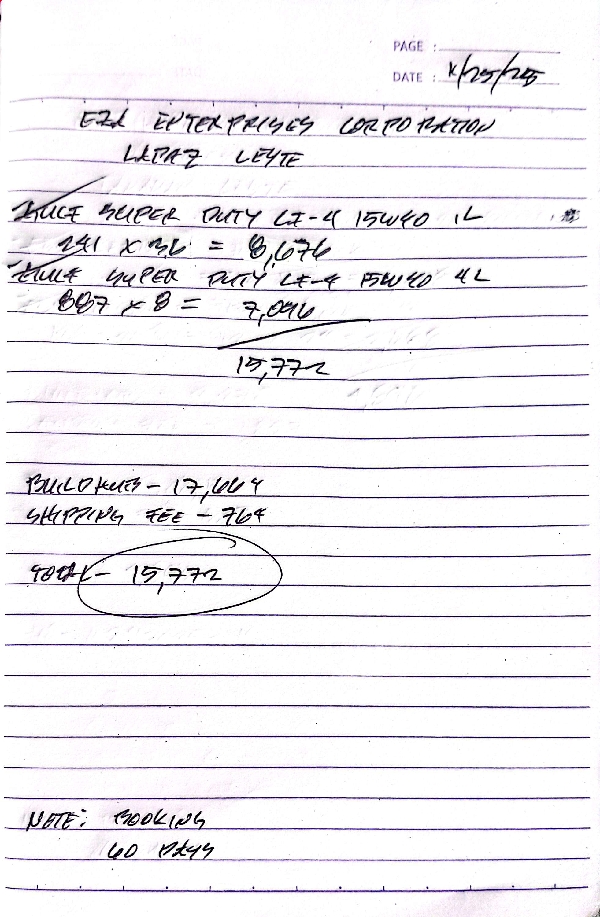 PAGE :
DATE : x/25/25
EZA ENTERPRISES CORPORATION
LAPAZ LEYTE
SUPER DUTY CI-4 15W40 1L
241 x 36 = 8,676
SUPER DUTY CI-4 15W40 4L
887 x 8 = 7,096
15,772
- 17,664
SHIPPING FEE - 764
TOTAL - 15,772
NOTE: BOOKING
60 DAYS